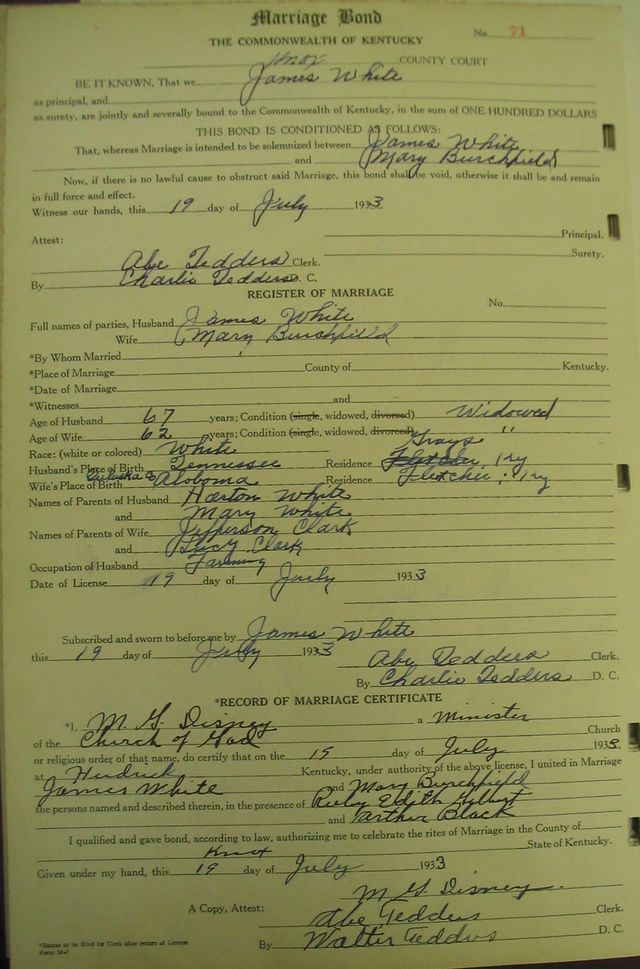 Marriage Bond
No. 71
THE COMMONWEALTH OF KENTUCKY
Knox COUNTY COURT
BE IT KNOWN, That we James White
as principal, and
as surety, are jointly and severally bound to the Commonwealth of Kentucky, in the sum of ONE HUNDRED DOLLARS
THIS BOND IS CONDITIONED AS FOLLOWS:
That, whereas Marriage is intended to be solemnized between James White
and Mary Burchfield
Now, if there is no lawful cause to obstruct said Marriage, this bond shall be void, otherwise it shall be and remain
in full force and effect.
Witness our hands, this 19 day of July 1933
Principal.
Attest:
Surety.
Abe Tedders Clerk.
By Charlie Tedders D. C.
REGISTER OF MARRIAGE
No.
Full names of parties, Husband James White
Wife Mary Burchfield
*By Whom Married
*Place of Marriage County of Kentucky.
*Date of Marriage
*Witnesses and
Age of Husband 67 years; Condition (single, widowed, divorced) Widowed
Age of Wife 62 years; Condition (single, widowed, divorced) "
Race: (white or colored) White Grays
Husband's Place of Birth Tennessee Residence Fletcher, Ky
Wife's Place of Birth Alabama Residence Fletcher, Ky
Names of Parents of Husband Horton White
and Mary White
Names of Parents of Wife Jefferson Clark
and Lucy Clark
Occupation of Husband Farming
Date of License 19 day of July 1933
Subscribed and sworn to before me by James White
this 19 day of July 1933
Abe Tedders Clerk.
By Charlie Tedders D. C.
*RECORD OF MARRIAGE CERTIFICATE
*I, M. G. Disney a Minister
of the Church of God Church
or religious order of that name, do certify that on the 19 day of July 1933.
at Hedrick Kentucky, under authority of the above license, I united in Marriage
James White and Mary Burchfield
the persons named and described therein, in the presence of Ruby Edith
and Arther Black
I qualified and gave bond, according to law, authorizing me to celebrate the rites of Marriage in the County of
Knox State of Kentucky.
Given under my hand, this 19 day of July 1933
M. G. Disney
A Copy, Attest: Abe Tedders Clerk.
By Walter Tedders D. C.
*Blanks to be filled by Clerk after return of License